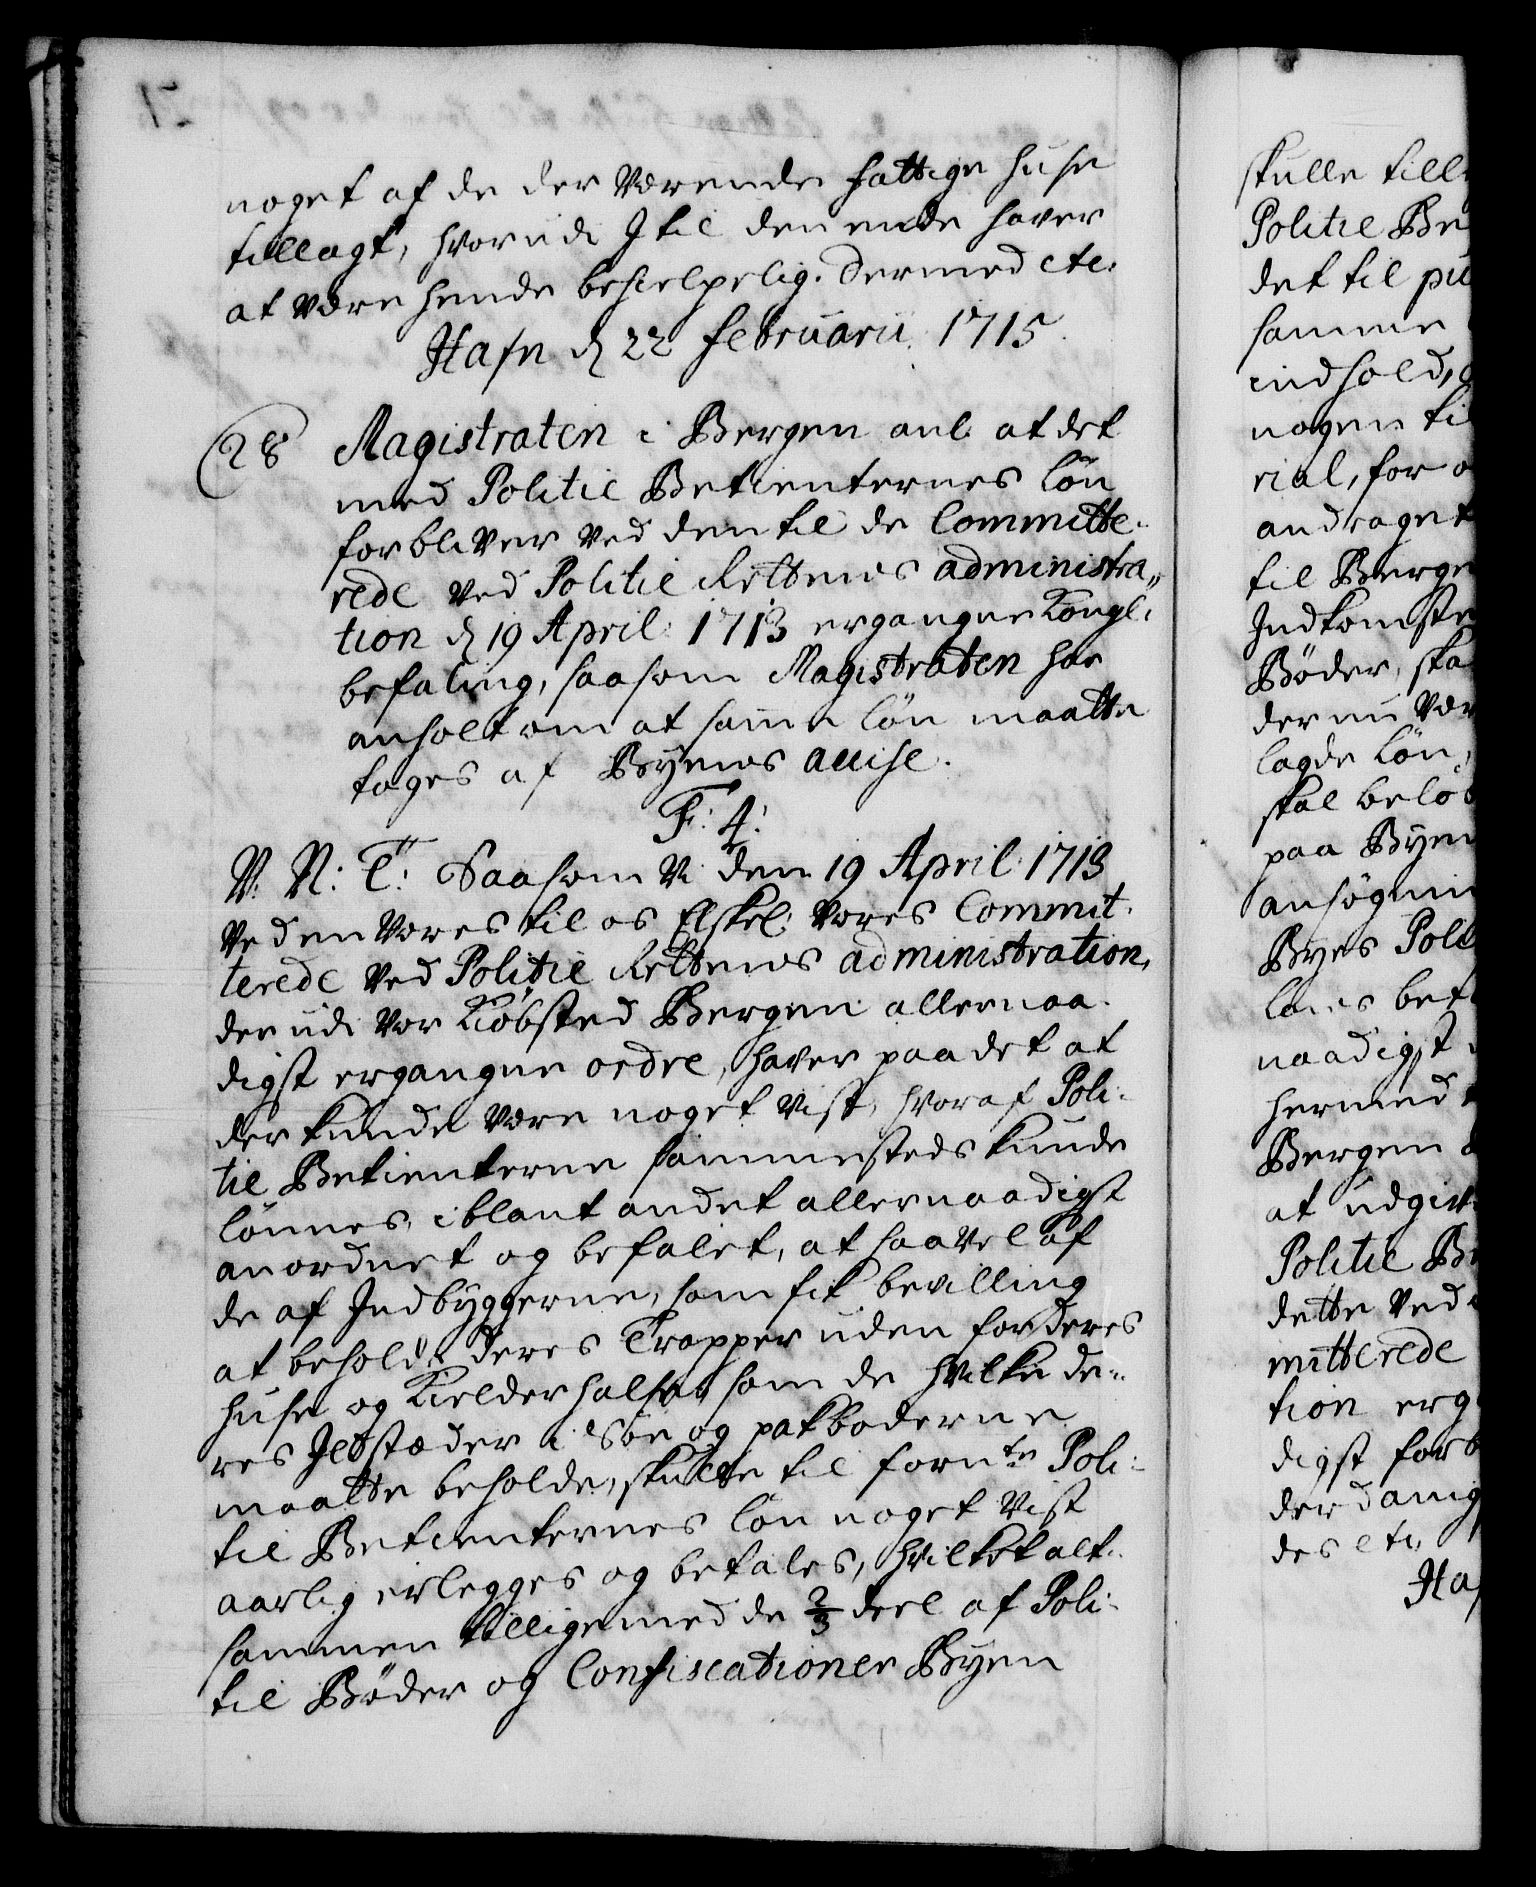 noget af de der værende fattige huse
tillagt, hvorudi I til den ende haver
at være hende behielpelig. Dermed etc.
Hafn d 22 Februarii 1715.
28 Magistraten i Bergen anl at det
med Politie Betienternes løn
forbliver ved den til de Committe-
rede ved Politie Rettens administra-
tion d 19 April 1713 ergangne Kongl:
befaling, saasom Magistraten har
anholt om at samme løn maatte
tages af Byens accise.
F: 4:
V. N: T: Saasom Vi den 19 April 1713
ved en vores til os Elskel: vores Commit-
terede ved Politie Rettens administration,
der udi vor Kiøbsted Bergen allernaa-
digst ergangne ordre, haver paa det at
der kunde være noget vist, hvoraf Poli-
tie Betienterne sammesteds kunde
lønnes, iblant andet allernaadigst
anordnet og befalet, at saavel af
de af Indbyggerne, som fik bevilling
at beholde deres Trapper uden for deres
huse og Kielderhalse som de hvilke de-
res Ildstæder i Søe og pakboderne
maatte beholde, skulle til fornte Poli-
tie Betienternes løn noget vist
aarlig erlegges og betales, hvilket alt-
sammen tilligemed de 2/3 deel af Poli-
tie Bøder og Confiscationer Byen
skulle till
Politie Be
det til pu
samme
indhold,
nogen til
rial, for
andraget
til Berge
Indkomste
Bøder, ska
der nu vær
lagde løn,
skal beløb
paa Byen
ansøgnin
Byes Poli
lønes bef
naadigst
hermed
Bergen
at udgiv
Politie Be
dette ved
mitterede
tion erg
digst forb
der
des etc.
Haf